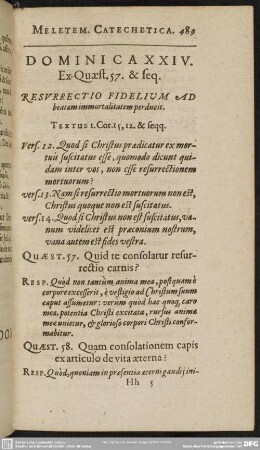 MELETEM. CATECHETICA. 489
DOMINICA XXIV.
Ex Quæst. 57. & seq.
RESVRRECTIO FIDELIUM AD
beatam immortalitatem perducit.
TEXTUS 1. Cor. 15, 12. & seqq.
Vers. 12. Quod si Christus prædicatur ex mor-
tuis suscitatus esse, quomodo dicunt qui-
dam inter vos, non esse resurrectionem
mortuorum?
vers. 13. Nam si resurrectio mortuorum non est,
Christus quoque non est suscitatus.
vers. 14. Quod si Christus non est suscitatus, va-
num videlicet est præconium nostrum,
vana autem est fides vestra.
QUÆST. 57. Quid te consolatur resur-
rectio carnis?
RESP. Quòd non tantùm anima mea, postquam è
corpore excesserit, è vestigio ad Christum suum
caput assumetur: verùm quòd hæc quoq; caro
mea, potentia Christi excitata, rursus animæ
meæ unietur, & glorioso corpori Christi confor-
mabitur.
QUÆST. 58. Quam consolationem capis
ex articulo de vita æterna?
RESP. Quòd, quoniam in præsentia æterni gaudij ini-
Hh 5
DFG